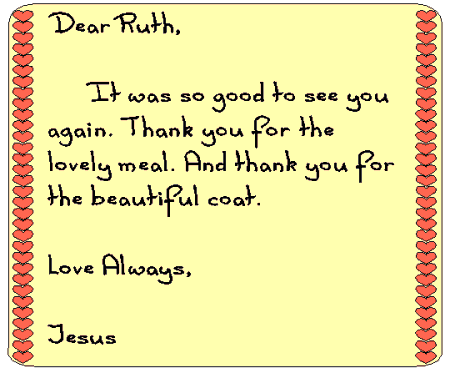 Dear Ruth,
It was so good to see you
again. Thank you for the
lovely meal. And thank you for
the beautiful coat.
Love Always,
Jesus